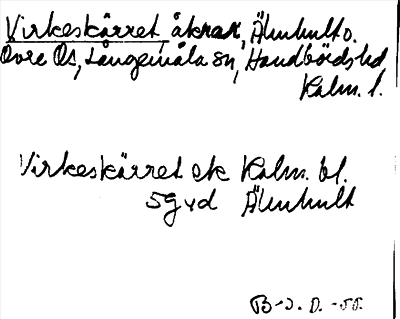 Virkeskärret, åkrar, Älmhult o.
Övre Ös, Långemåla sn, Handbörds hd,
Kalm. l.
Virkeskärret ek Kalm. bl.
5gvd Älmhult
B-J. D. -55.